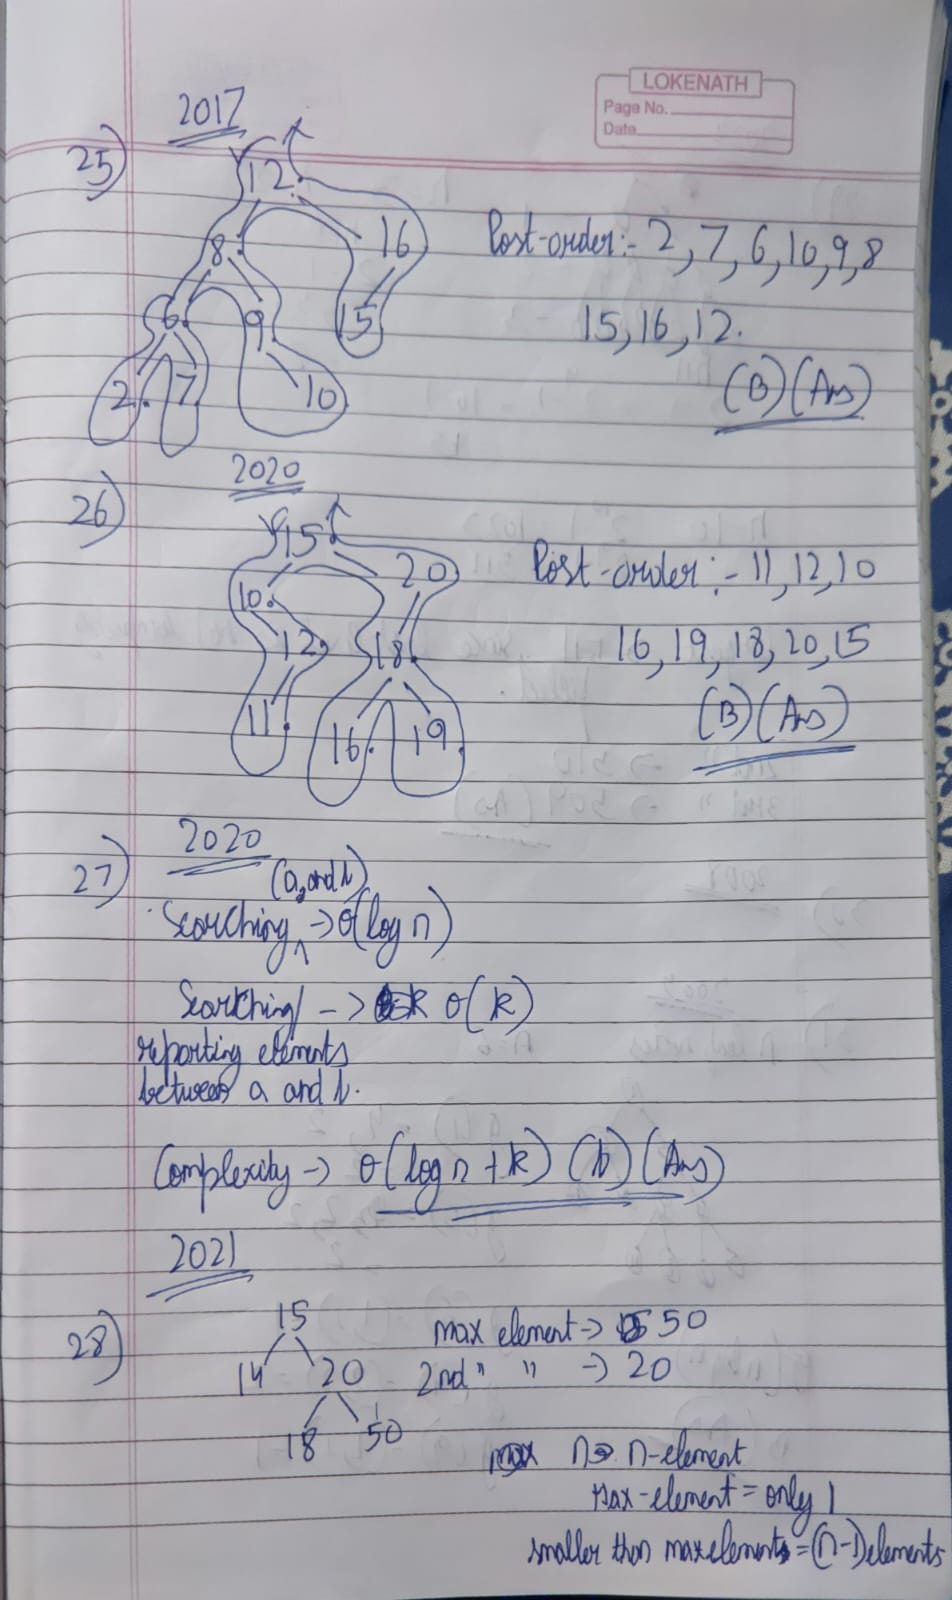 LOKENATH
Page No.
Date
2017
25)
12
8 16
6 9 15
2 7 10
Post-order:- 2, 7, 6, 10, 9, 8
15, 16, 12.
(B) (Ans)
2020
26)
15
10 20
12 18
11 16 19
Post-order:- 11, 12, 10
16, 19, 18, 20, 15
(B) (Ans)
2020
27)
(a, and b)
Searching → O(log n)
Searching/ → O(k)
reporting elements
between a and b.
Complexity → O(log n + k) (b) (Ans)
2021
28)
15
14 20
18 50
max element → 50
2nd " " → 20
n → n-element
Max-element = only 1
smaller than max elements = (n-1) elements